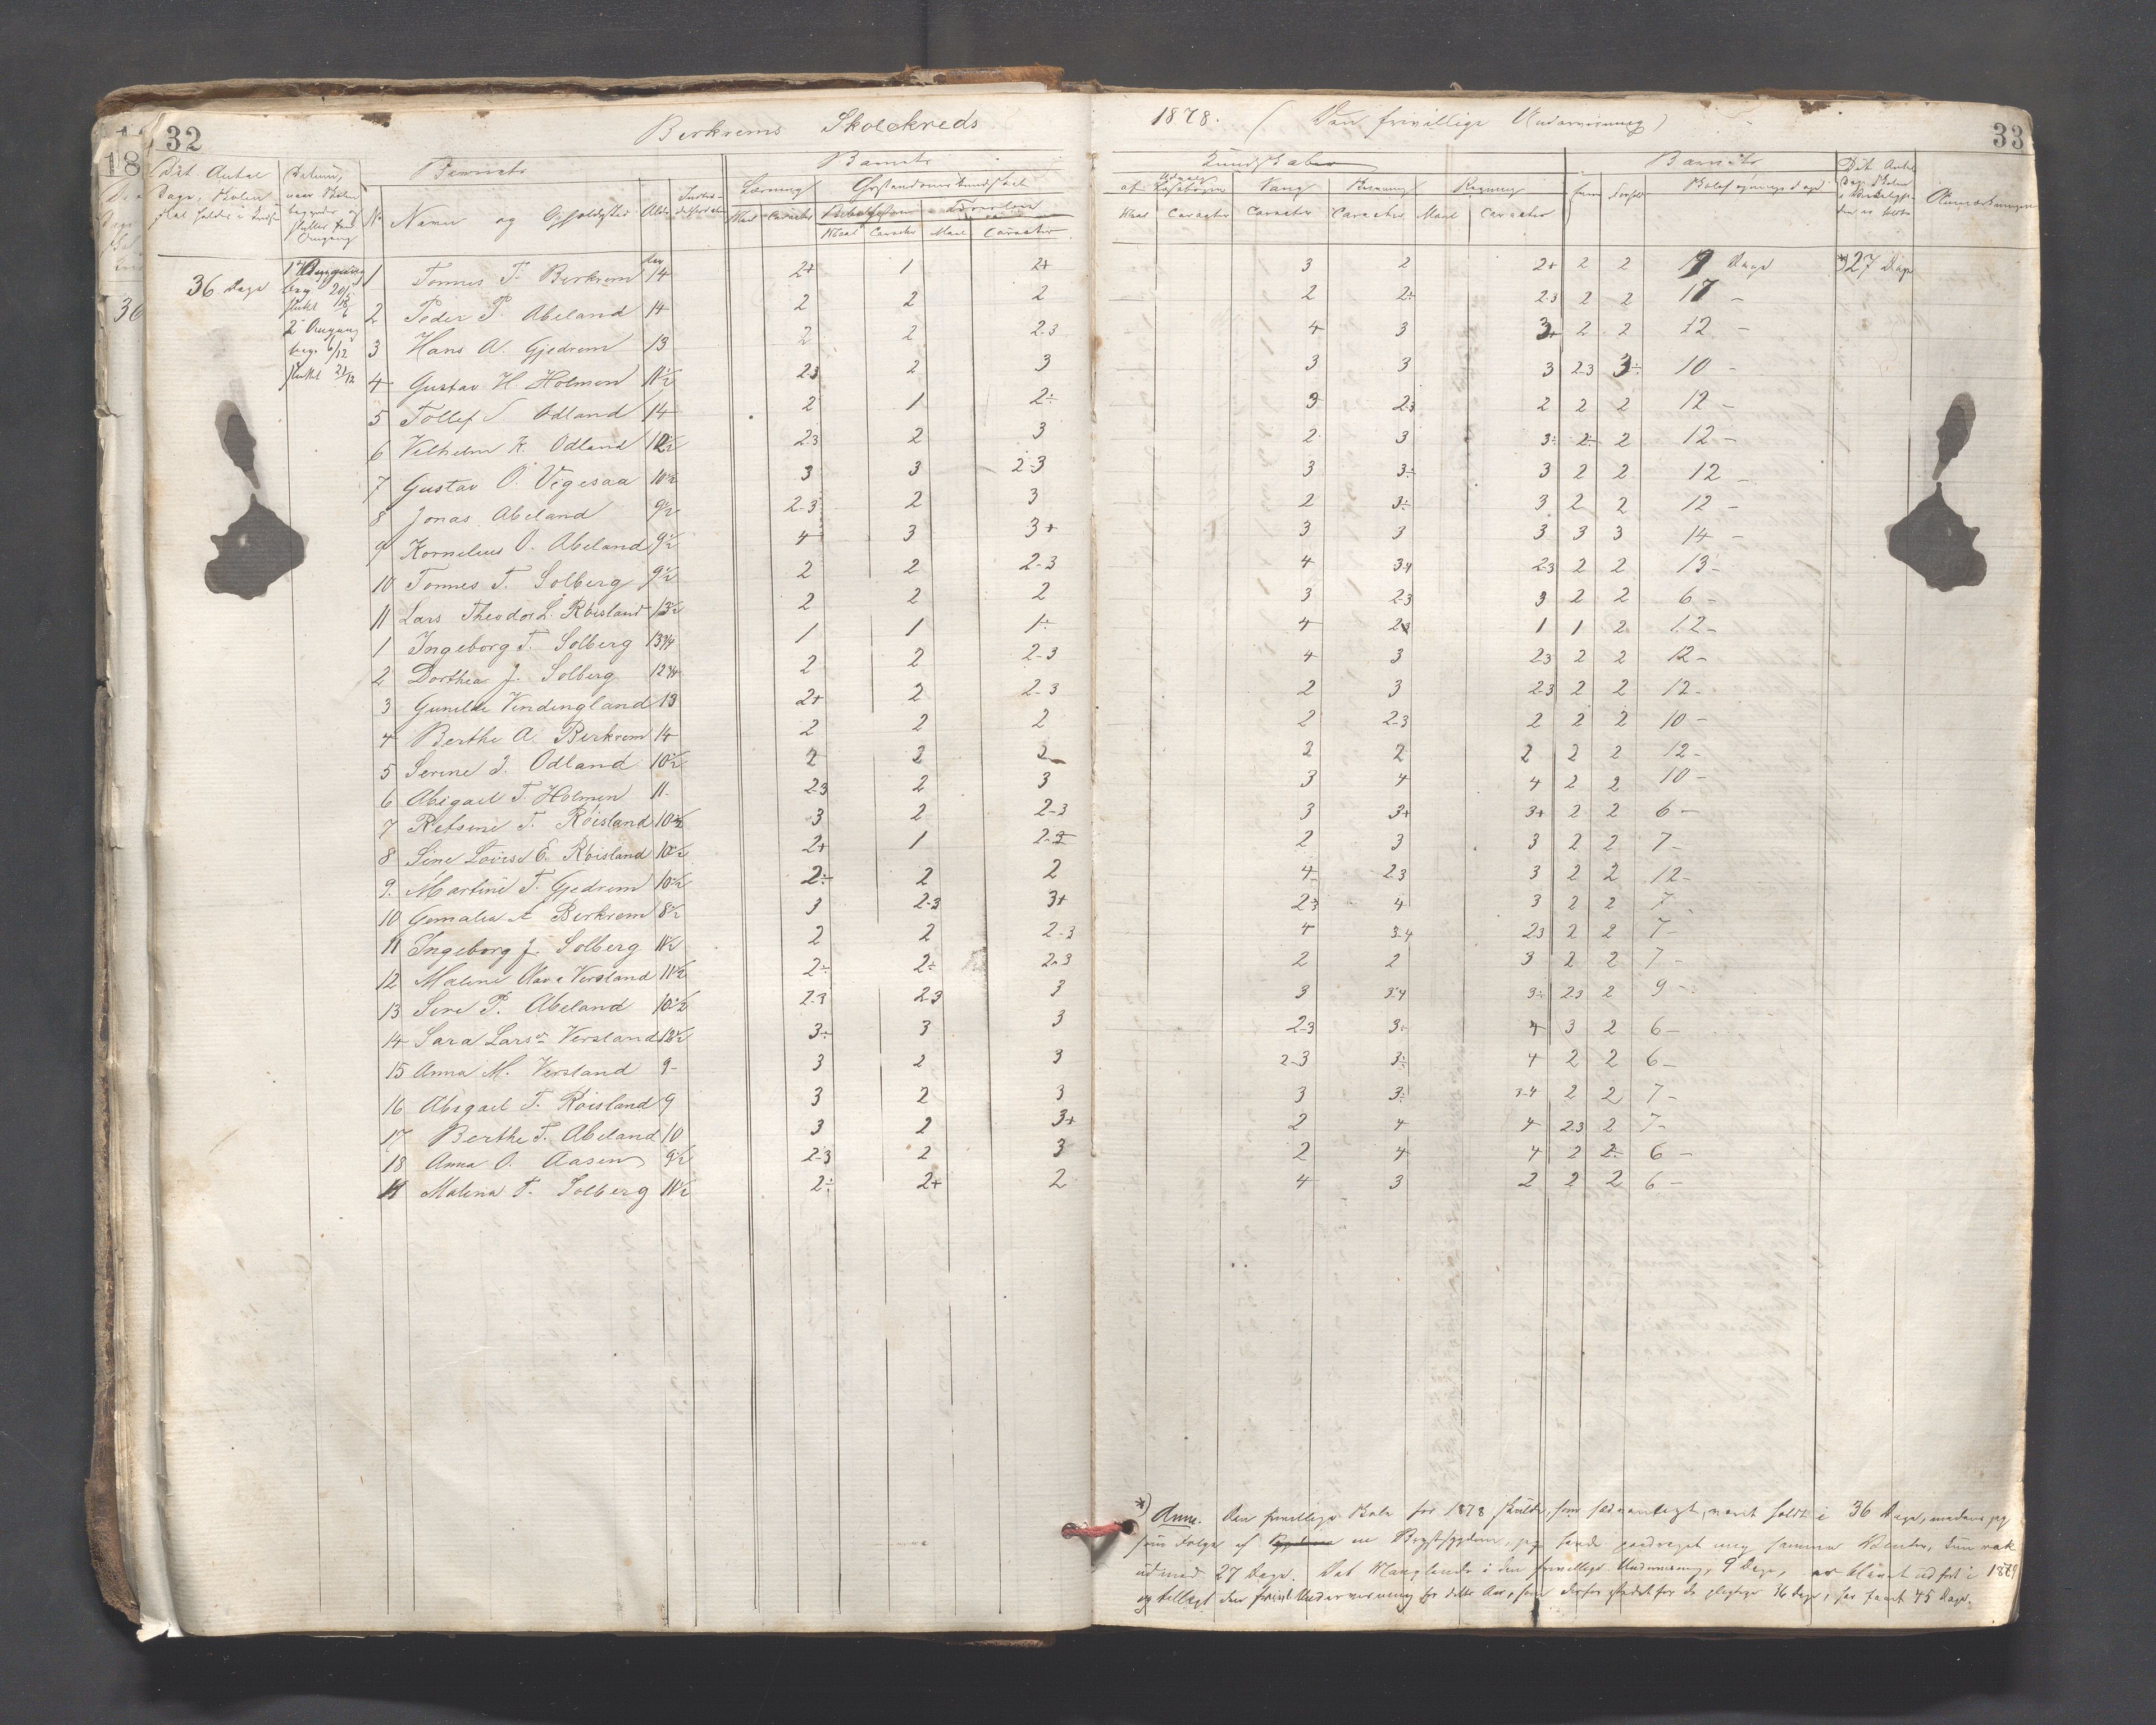 32
Berkrems Skolekreds
1878. (Den frivillige Undervisning)
33
Det Antal Dage, Skolen skal holdes i Kredsen
Datum, naar Skolen begynder og slutter hver Omgang
Barnets
No
Navn og Opholdssted
Alder
Barnets
Kundskaber
Læsning
Christendomskundskab
Maal Caracter
Maal Caracter Maal Caracter
Udvalg af Læsebogen
Sang
Skrivning
Regning
Maal Caracter Caracter Caracter Maal Caracter
Barnets
Evne
Forhold
Anmærkninger
36 Dage
2 Omgang
beg. 6/12
sluttet 21/12
1 Tonnes T. Berkrem 14 2+ 1 2+ 3 2 2+ 2 2 9 Dage *) 27 Dage
2 Peder P. Abeland 14 2 2 2 2 2÷ 2.3 2 2 17 –
3 Hans A. Gjedrem 13 2 2 2-3 4 3 3+ 2 2 12 –
4 Gustav H. Holmen 11½ 2.3 2 3 3 3 3 2-3 3÷ 10 –
5 Tollef S. Odland 14 2 1 2÷ 3 2.3 2 2 2 12 –
6 Vilhelm K. Odland 12½ 2.3 2 3 2 3 3÷ 2÷ 2 12 –
7 Gustav O. Vigesaa 10½ 3 3 2-3 3 3÷ 3 2 2 12 –
8 Jonas Abeland 9½ 2-3 2 3 2 3÷ 3 2 2 12 –
9 Kornelius O. Abeland 9½ 4 3 3+ 3 3 3 3 3 14 –
10 Tonnes T. Solberg 9½ 2 2 2-3 4 3.4 2.3 2 2 13 –
11 Lars Theodor L. Røisland 13½ 2 2 2 3 2.3 3 2 2 6 –
1 Ingeborg T. Solberg 13¾ 1 1 1÷ 4 2.3 1 1 2 12 –
2 Dorthea J. Solberg 12¾ 2 2 2-3 4 3 2.3 2 2 12 –
3 Gunilde Vindingland 13 2+ 2 2-3 2 3 2.3 2 2 12 –
4 Berthe A. Berkrem 14 2 2 2 2 2.3 2 2 2 10 –
5 Serine J. Odland 10½ 2 2 2 2 2 2 2 2 12 –
6 Abigael T. Holmen 11 2.3 2 3 3 4 4 2 2 10 –
7 Retsine T. Røisland 10½ 3 2 2-3 3 3+ 3+ 2 2 6 –
8 Sine Lovise E. Røisland 10½ 2+ 1 2-3 2 3 3 2 2 7 –
9. Martine T. Gjedrem 10½ 2÷ 2 2 4 2.3 3 2 2 12 –
10 Gomalia A Berkrem 8½ 3 2-3 3+ 2.3 4 3 2 2 7
11 Ingeborg J. Solberg 11½ 2 2 2-3 4 3.4 2.3 2 2 7 –
12 Malene Olava Versland 11½ 2÷ 2÷ 2-3 2 2 3 2 2 7 –
13 Sire P. Abeland 10½ 2.3 2.3 3 3 3.4 3÷ 2.3 2 9 –
14 Sara Larsen Versland 12½ 3÷ 3 3 2-3 3÷ 4 3 2 6 –
15 Anna M. Versland 9 3 2 3 2-3 3÷ 4 2 2 6 –
16 Abigael T. Røisland 9 3 2 3 3 3÷ 3-4 2 2 7 –
17 Berthe T. Abeland 10 3 2 3+ 2 4 4 2.3 2 7 –
18 Anna O. Aasen 9½ 2-3 2 3 2 4 4 2 2÷ 6 –
Malena T. Solberg 11½ 2÷ 2+ 2 4 3 2 2 2 6 –
*) Anm. Den frivillige Skole for 1878 skulde, som sædvanligt, været holdt i 36 Dage, medens jeg
som Følge af en Brystsygdom, jeg havde paadraget mig samme Vinter, kun rak
ud med 27 Dage. Det Manglende i den frivillige Undervisning, 9 Dage, er blevet udført i 1879
og tillagt den frivil. Undervisning for dette Aar, som derfor istedet for de pligtige 36 Dage, har faaet 45 Dage.